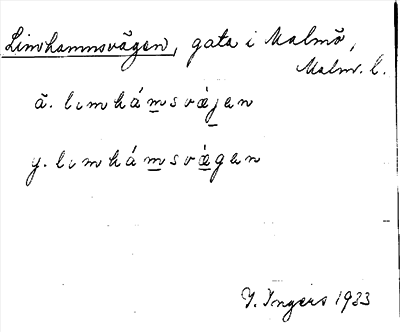 Limhamnsvägen, gata i Malmö,
Malm. l.
ä. limhámsvǽjen
y. limhámsvǽgen
I. Ingers 1933